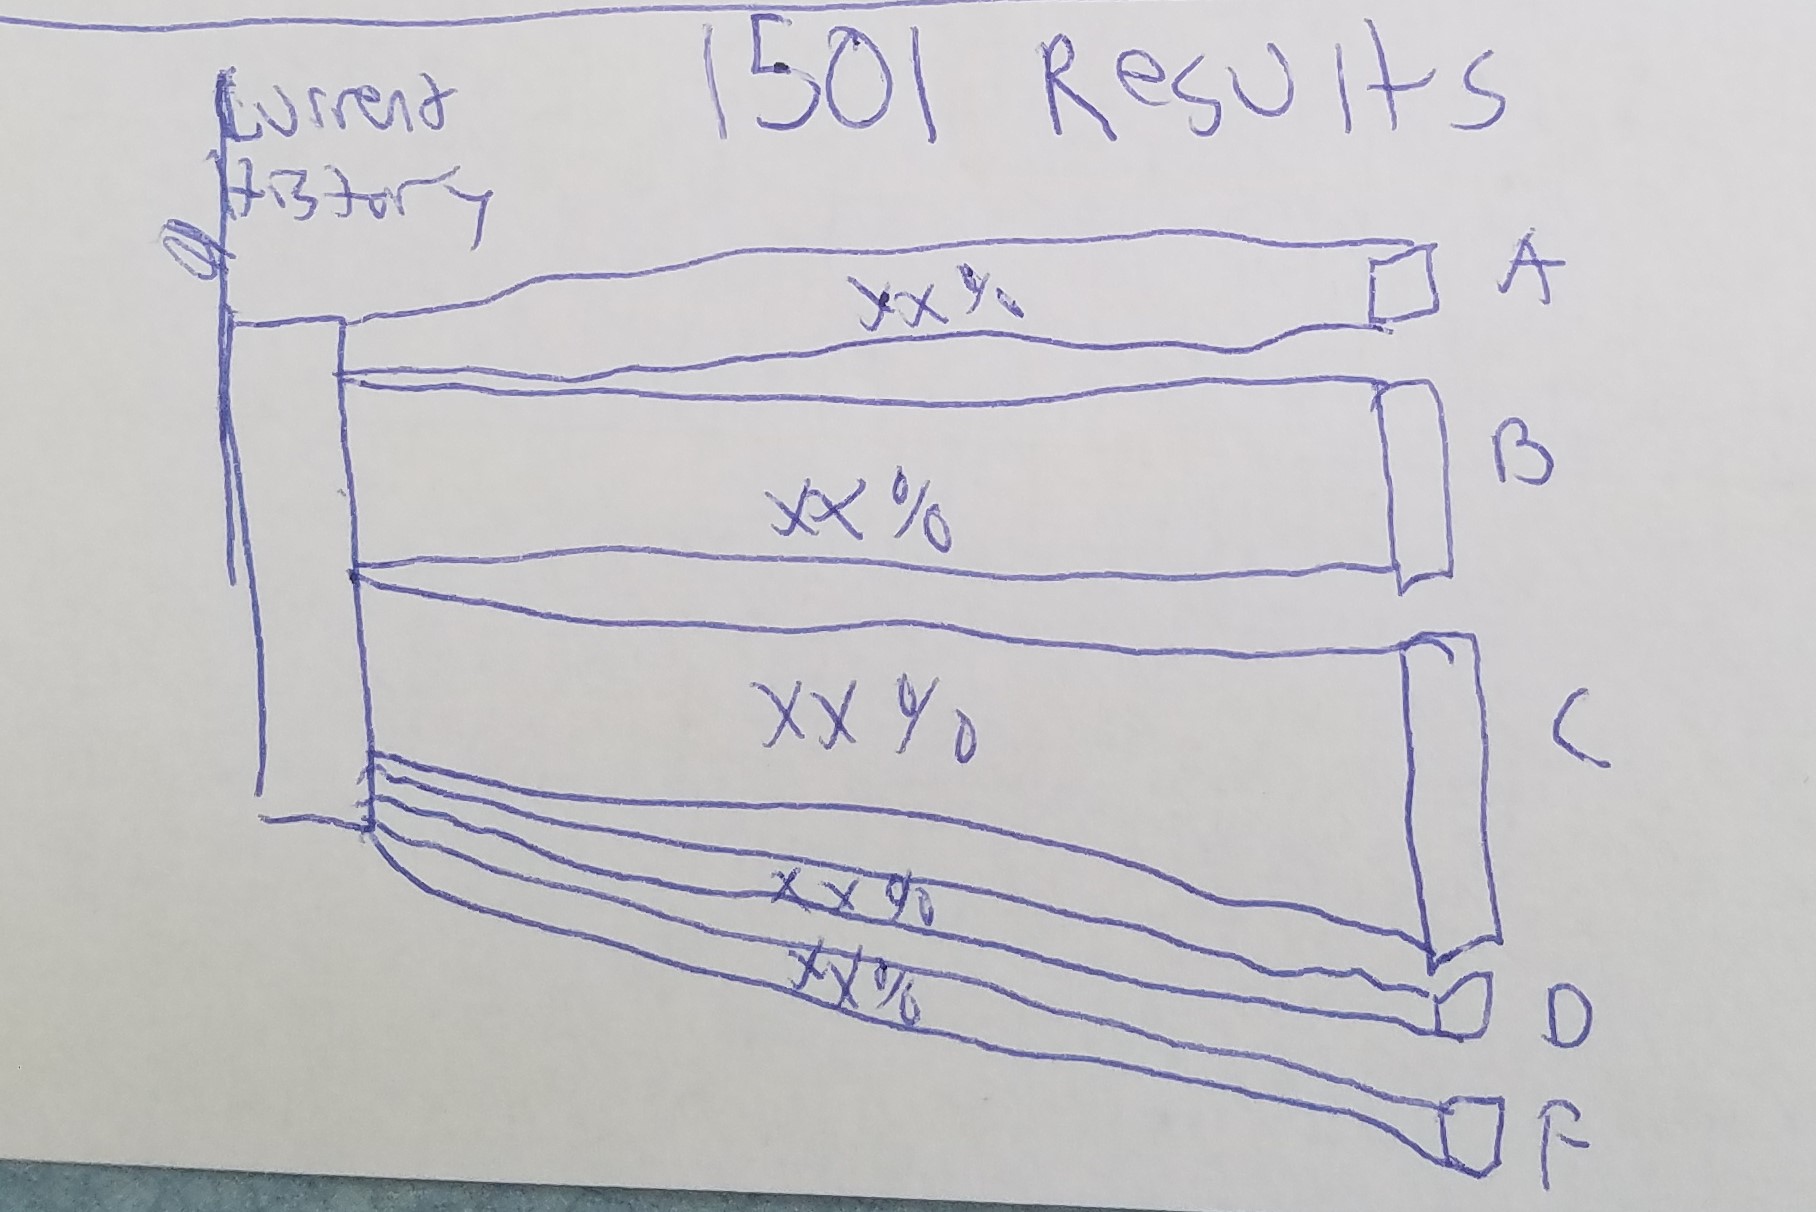 1501 Results
Current
History
xx%
A
xx%
B
xx%
C
xx%
D
xx%
F